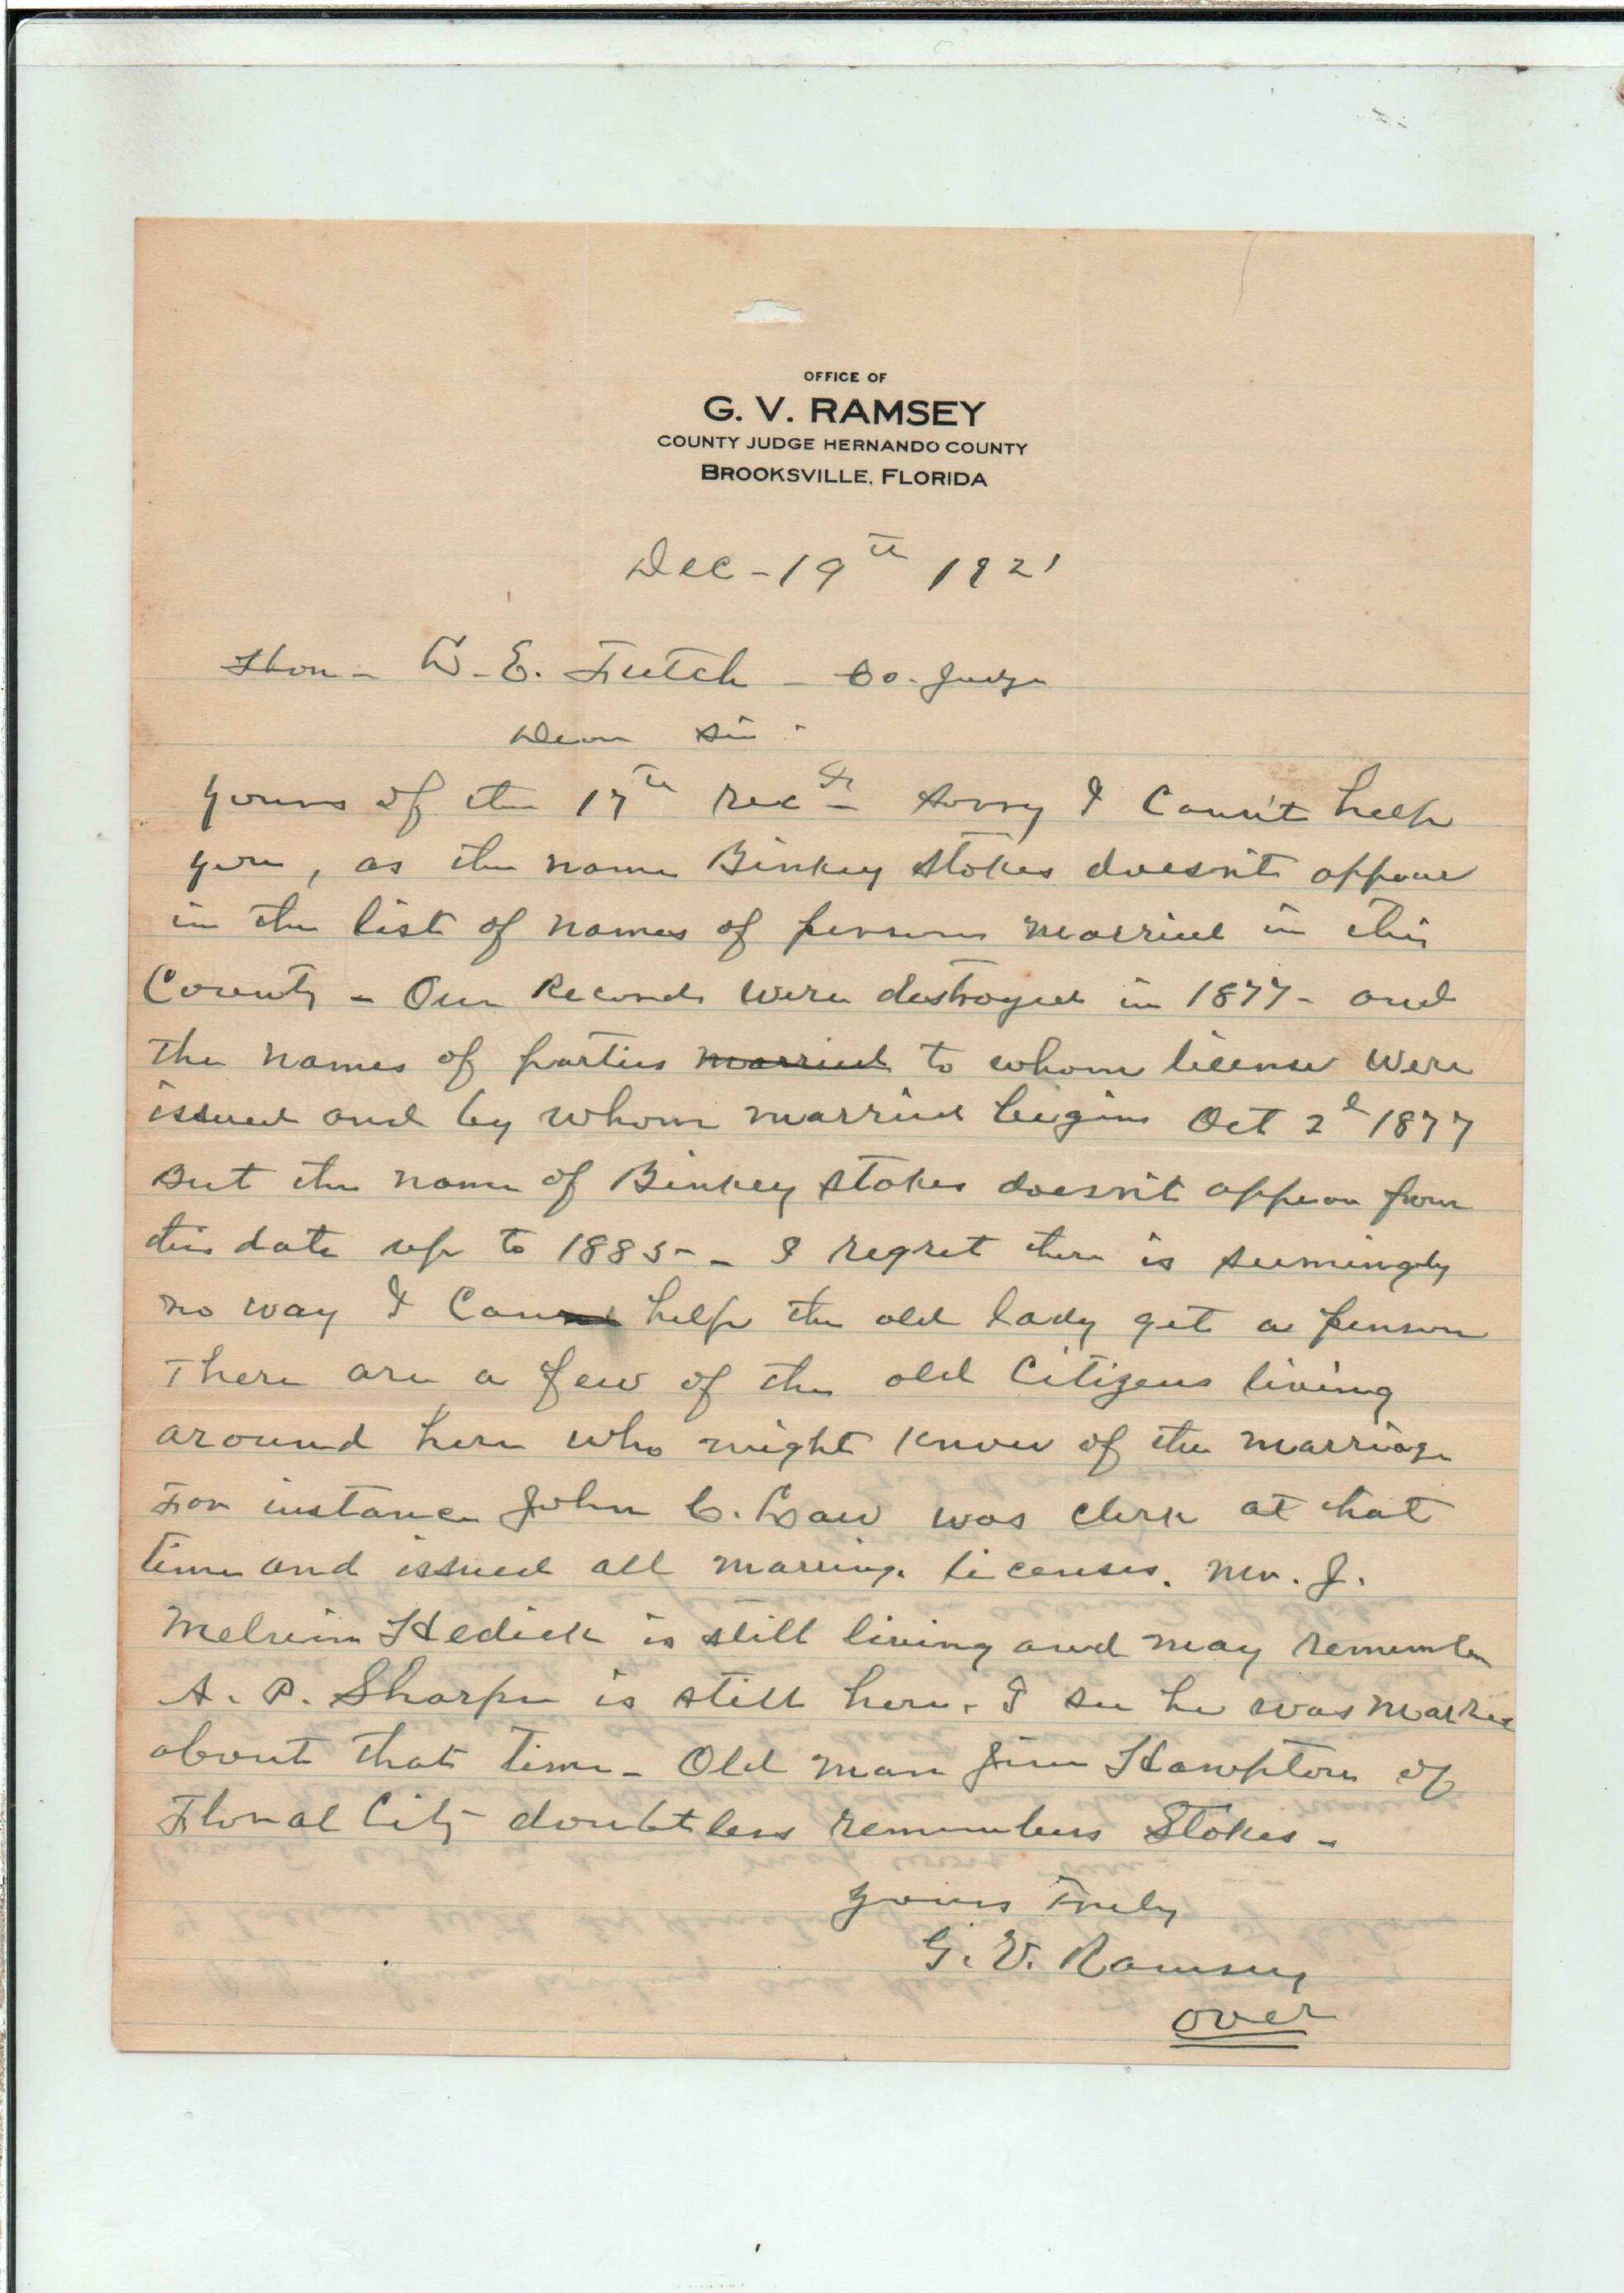 OFFICE OF
G. V. RAMSEY
COUNTY JUDGE HERNANDO COUNTY
BROOKSVILLE, FLORIDA
Dec - 19th 1921
Hon - W. E. Futch - Co. Judge
Dear Sir -
Yours of the 17th recd - Sorry I Can't help
you, as the name Binkey Stokes doesn't appear
in the list of names of persons married in this
County - Our Records were destroyed in 1877 - and
the names of parties married to whom license were
issued and by whom married begins Oct 2d 1877
But the name of Binkey Stokes doesn't appear from
this date up to 1885 - I regret there is seemingly
no way I Can help the old lady get a pension
There are a few of the old Citizens living
around here who might know of the marriage
For instance John C. Law was clerk at that
time and issued all marriage licenses. Mr. J.
Melvin Hedick is still living and may remember
A. P. Sharpe is still here. I see he was married
about that time - Old man Jim Hampton of
Floral City doubtless remembers Stokes -
Yours Truly
G. V. Ramsey
over